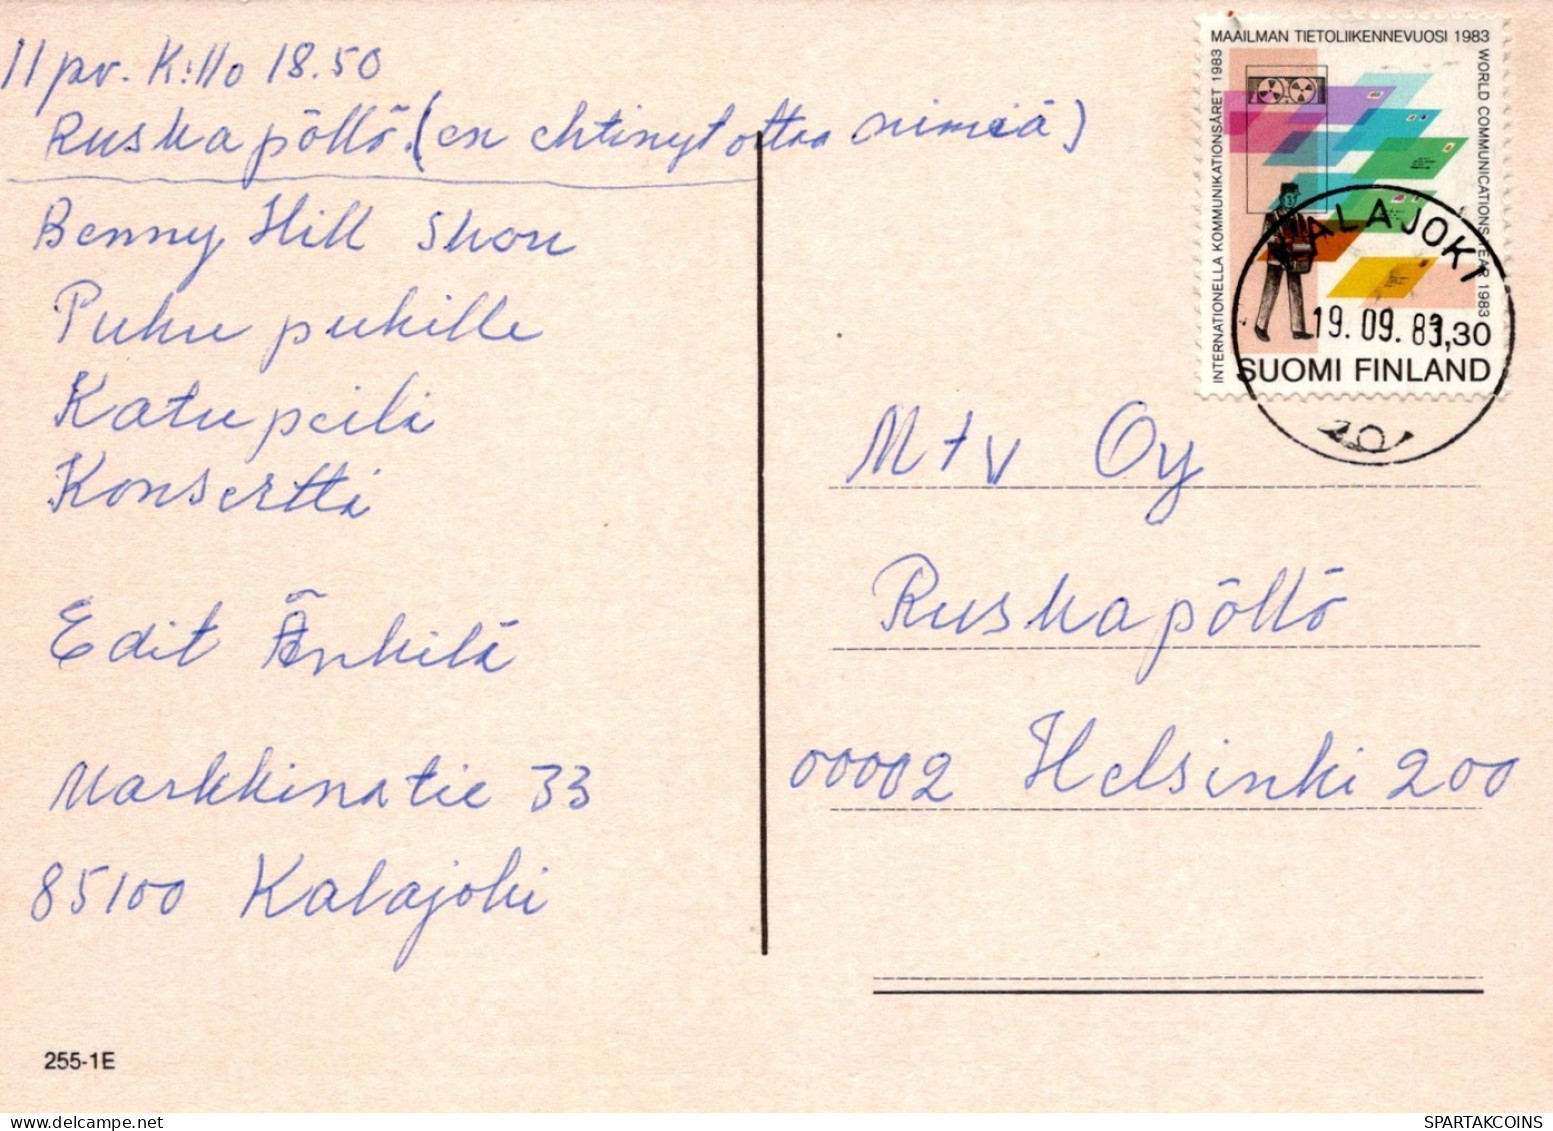 11 pv. K:llo 18.50
Ruskapöllö. (en ehtinyt ottaa nimiä)
Benny Hill Show
Puhu pukille
Katupeili
Konsertti
Edit Änkilä
Markkinatie 33
85100 Kalajoki
255-1E
MAAILMAN TIETOLIIKENNEVUOSI 1983
INTERNATIONELLA KOMMUNIKATIONSÅRET 1983
WORLD COMMUNICATIONS YEAR 1983
1,30
SUOMI FINLAND
ALAJOKI
19.09.83
20
Mtv Oy
Ruskapöllö
00002 Helsinki 200
SPARTAKCOINS